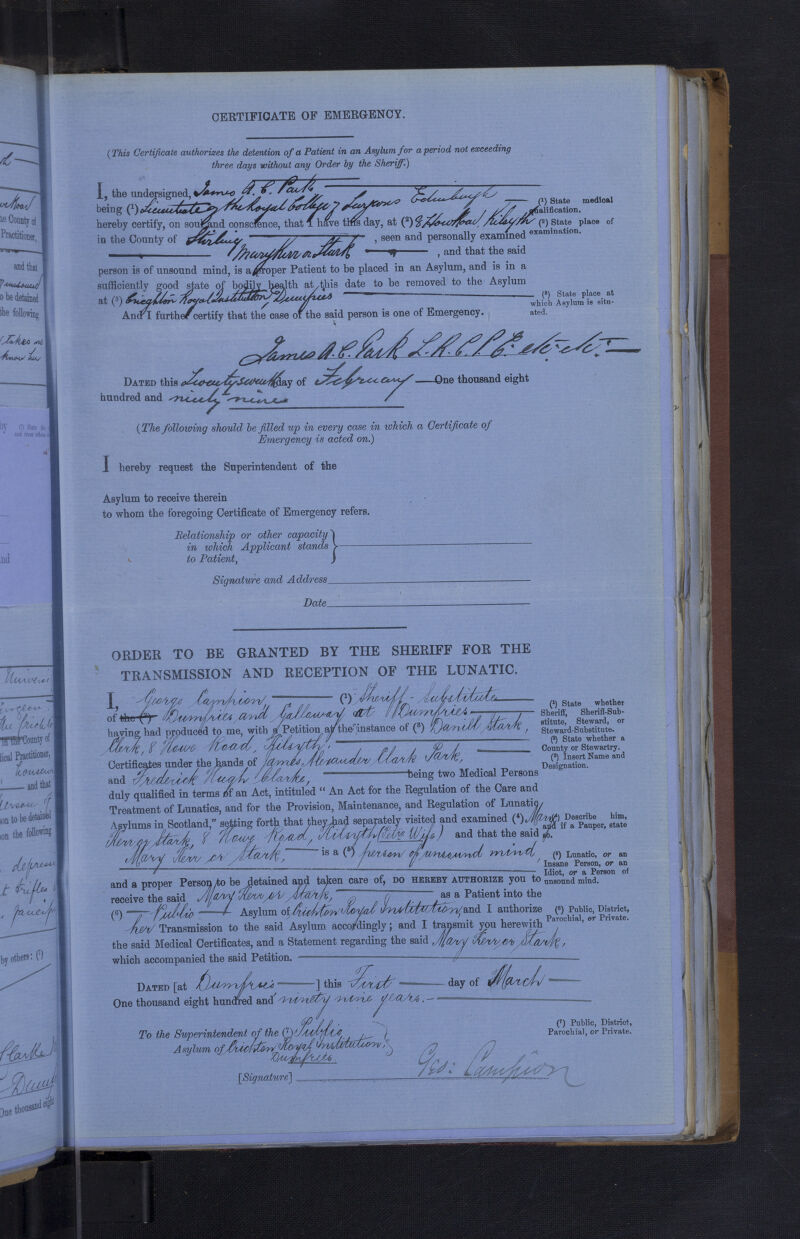 CERTIFICATE OF EMERGENCY.
(This Certificate authorizes the detention of a Patient in an Asylum for a period not exceeding
three days without any Order by the Sheriff.)
I, the undersigned, James A. C. Park
being (1) Licentiate of the Royal College of Surgeons Edinburgh
(1) State medical
qualification.
hereby certify, on soul and conscience, that I have this day, at (2) 8 Howe Road, Kilsyth
(2) State place of
examination.
in the County of Stirling, seen and personally examined
Mary Kerr or Stark, and that the said
person is of unsound mind, is a proper Patient to be placed in an Asylum, and is in a
sufficiently good state of bodily health at this date to be removed to the Asylum
at (3) Crieghton Royal Institution Dumfries
(3) State place at
which Asylum is situ-
ated.
And I further certify that the case of the said person is one of Emergency.
James A. C. Park L.R.C.P. E. etc. etc.
DATED this Twenty seventh day of February One thousand eight
hundred and ninety nine
(The following should be filled up in every case in which a Certificate of
Emergency is acted on.)
I hereby request the Superintendent of the
Asylum to receive therein
to whom the foregoing Certificate of Emergency refers.
Relationship or other capacity
in which Applicant stands
to Patient,
Signature and Address
Date
ORDER TO BE GRANTED BY THE SHERIFF FOR THE
TRANSMISSION AND RECEPTION OF THE LUNATIC.
I, George Campion, (1) Sheriff-Substitute
(1) State whether
Sheriff, Sheriff-Sub-
stitute, Steward, or
Steward-Substitute.
of the (2) Dumfries and Galloway at Dumfries
(2) State whether a
County or Stewartry.
having had produced to me, with a Petition at the instance of (3) Daniel Stark,
(3) Insert Name and
Designation.
Clerk, 8 Howe Road, Kilsyth,
Certificates under the hands of James Alexander Clark Park,
and Frederick Hugh Clarke, being two Medical Persons
duly qualified in terms of an Act, intituled "An Act for the Regulation of the Care and
Treatment of Lunatics, and for the Provision, Maintenance, and Regulation of Lunatic
Asylums in Scotland," setting forth that they had separately visited and examined (4) Mary
(4) Describe him,
and if a Pauper, state
so.
Kerr or Stark, 8 Howe Road, Kilsyth (Wife) and that the said
Mary Kerr or Stark, is a (5) person of unsound mind,
(5) Lunatic, or an
Insane Person, or an
Idiot, or a Person of
unsound mind.
and a proper Person to be detained and taken care of, DO HEREBY AUTHORIZE you to
receive the said Mary Kerr or Stark, as a Patient into the
(6) Public Asylum of Crichton Royal Institution, and I authorize
(6) Public, District,
Parochial, or Private.
her Transmission to the said Asylum accordingly; and I transmit you herewith
the said Medical Certificates, and a Statement regarding the said Mary Kerr or Stark,
which accompanied the said Petition.
DATED [at Dumfries] this First day of March
One thousand eight hundred and ninety nine years.
To the Superintendent of the (7) Public
(7) Public, District,
Parochial, or Private.
Asylum of Crichton Royal Institution,
Dumfries
[Signature] Geo: Campion